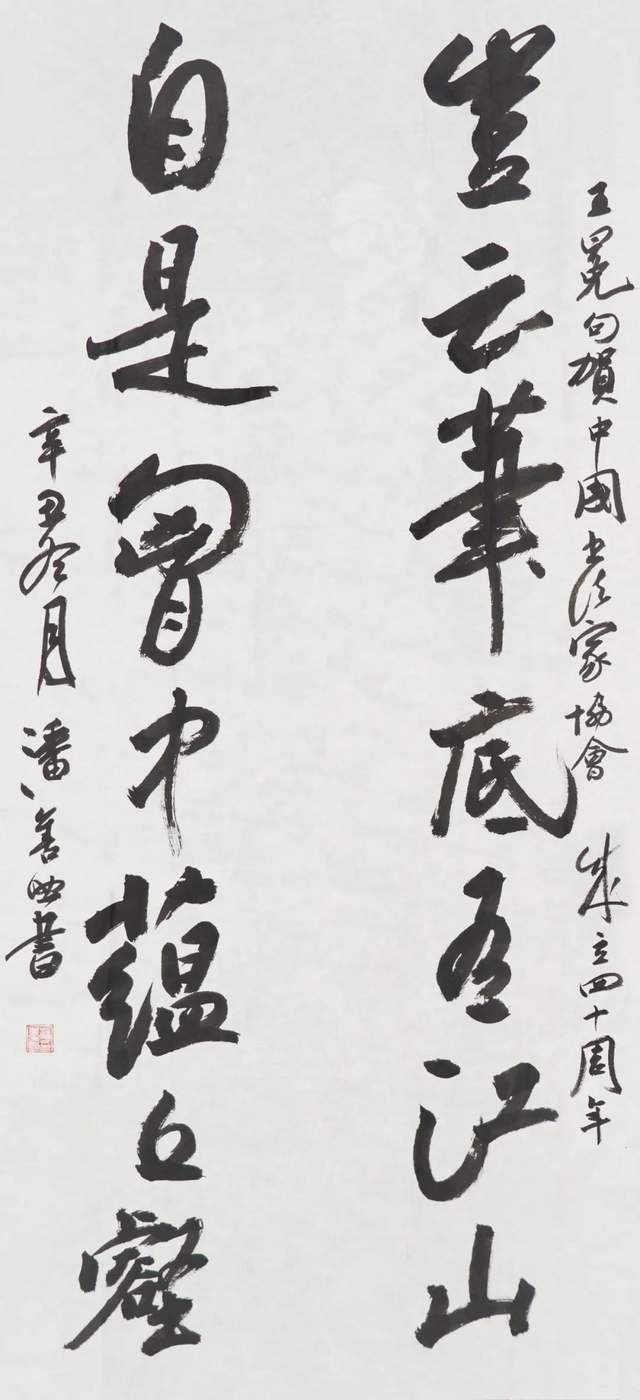 王冕句賀中國书法家協會 成立四十周年
豈云筆底有江山
自是胷中蘊丘壑
辛丑冬月 潘善助書